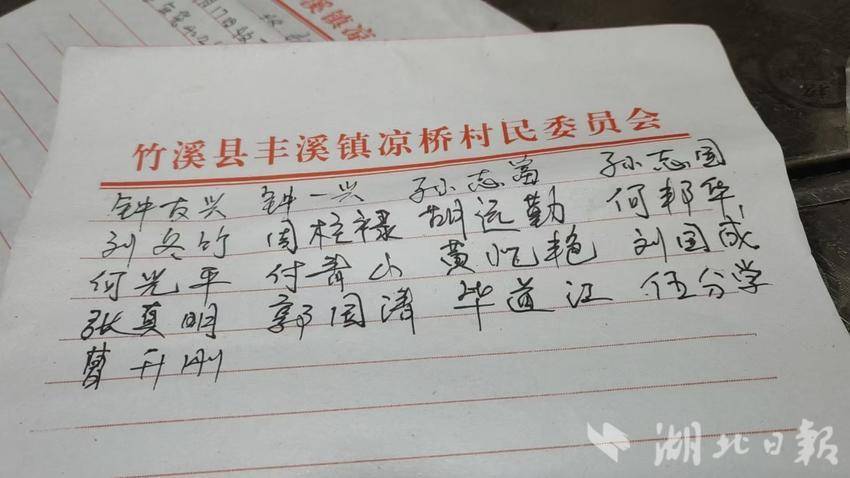 竹溪县丰溪镇凉桥村民委员会
钟友兴 钟一兴 孙志富 孙志国
刘冬竹 周桂禄 胡远勤 何邦华
何光平 付青山 黄忆艳 刘国成
张真明 郭国清 毕道江 伍分学
曹升刚
湖北日報